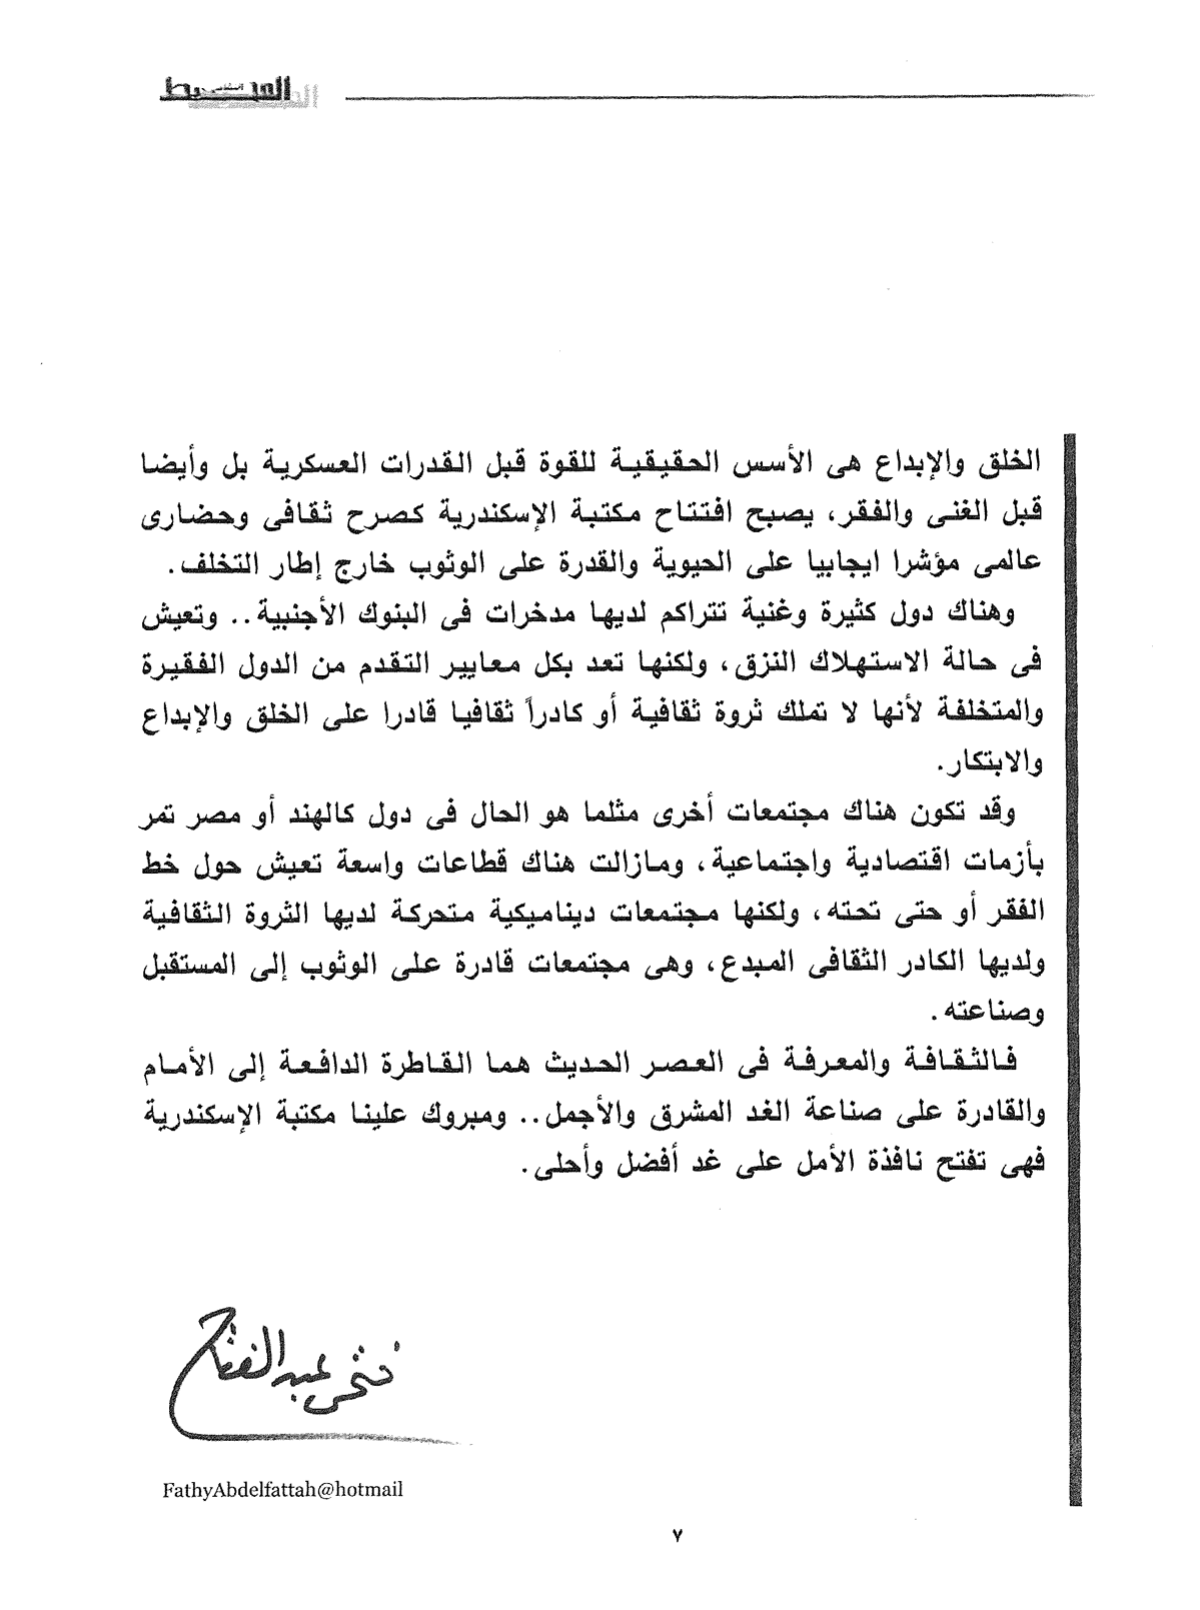 المحيط
الخلق والإبداع هى الأسس الحقيقية للقوة قبل القدرات العسكرية بل وأيضا
قبل الغنى والفقر، يصبح افتتاح مكتبة الإسكندرية كصرح ثقافى وحضارى
عالمى مؤشرا ايجابيا على الحيوية والقدرة على الوثوب خارج إطار التخلف.
وهناك دول كثيرة وغنية تتراكم لديها مدخرات فى البنوك الأجنبية.. وتعيش
فى حالة الاستهلاك النزق، ولكنها تعد بكل معايير التقدم من الدول الفقيرة
والمتخلفة لأنها لا تملك ثروة ثقافية أو كادراً ثقافيا قادرا على الخلق والإبداع
والابتكار.
وقد تكون هناك مجتمعات أخرى مثلما هو الحال فى دول كالهند أو مصر تمر
بأزمات اقتصادية واجتماعية، ومازالت هناك قطاعات واسعة تعيش حول خط
الفقر أو حتى تحته، ولكنها مجتمعات ديناميكية متحركة لديها الثروة الثقافية
ولديها الكادر الثقافى المبدع، وهى مجتمعات قادرة على الوثوب إلى المستقبل
وصناعته.
فالثقافة والمعرفة فى العصر الحديث هما القاطرة الدافعة إلى الأمام
والقادرة على صناعة الغد المشرق والأجمل.. ومبروك علينا مكتبة الإسكندرية
فهى تفتح نافذة الأمل على غد أفضل وأحلى.
فتحى عبد الفتاح
FathyAbdelfattah@hotmail
٧